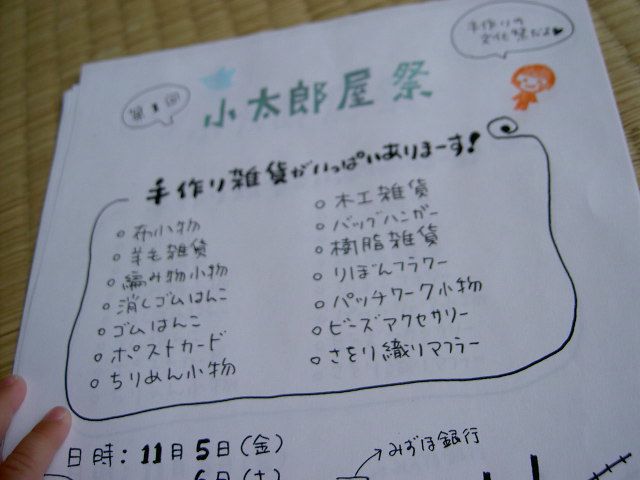 第1回
小太郎屋祭
手作りの
文化祭だよ♥
手作り雑貨がいっぱいありまーす!
○布小物
○羊毛雑貨
○編み物小物
○消しゴムはんこ
○ゴムはんこ
○ポストカード
○ちりめん小物
○木工雑貨
○バッグハンガー
○樹脂雑貨
○りぼんフラワー
○パッチワーク小物
○ビーズアクセサリー
○さをり織りマフラー
日時:11月5日(金)
6日(土)
→みずほ銀行